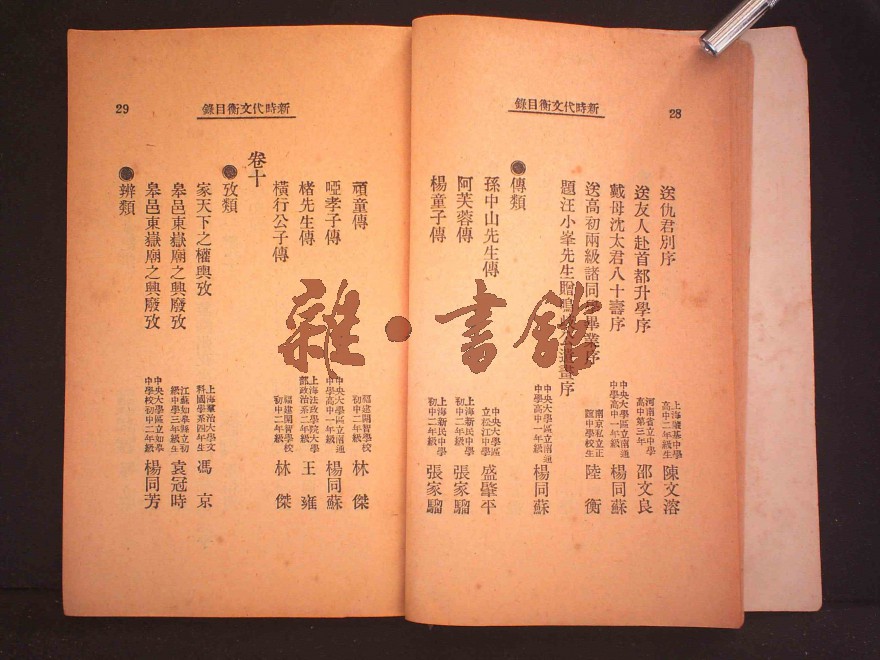 新時代文衡目錄
28
送仇君別序
上海浸基中學高中二年級生 陳文溶
送友人赴首都升學序
河南省立中學高中第三年 邵文良
戴母沈太君八十壽序
中央大學區立南通中學高中一年級 楊同蘇
送高初兩級諸同學畢業序
南京私立正誼中學校生 陸衡
題汪小峯先生贈鳴
畫序
中央大學區立南通中學高中一年級 楊同蘇
傳類
孫中山先生傳
中央大學區立松江中學 盛肇平
阿芙蓉傳
上海新民中學初中二年級 張家騮
楊童子傳
上海新民中學初中二年級 張家騮
新時代文衡目錄
29
頑童傳
福建開智學校初中二年級 林傑
啞孝子傳
中央大學區立南通中學高中一年級 楊同蘇
楮先生傳
上海法政學院大學部政治系二年級 王雍
橫行公子傳
福建開智學校初中二年級 林傑
卷十
攷類
家天下之權輿攷
上海羣治大學文科國學系四年生 馮京
皋邑東嶽廟之興廢攷
江蘇如皋縣立初級中學三年級生 袁冠時
皋邑東嶽廟之興廢攷
中央大學區立如皋中學校初中二年級 楊同芳
辨類
雜·書館